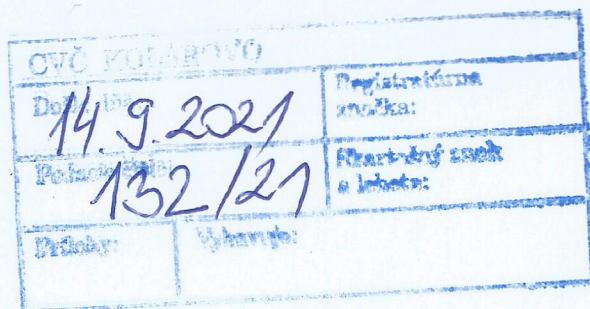 CVČ KOLÁROVO
Došlo dňa:
14.9.2021
Registratúrna
značka:
132/21
Skartačný znak
a lehota:
Prílohy:
Vybavuje: